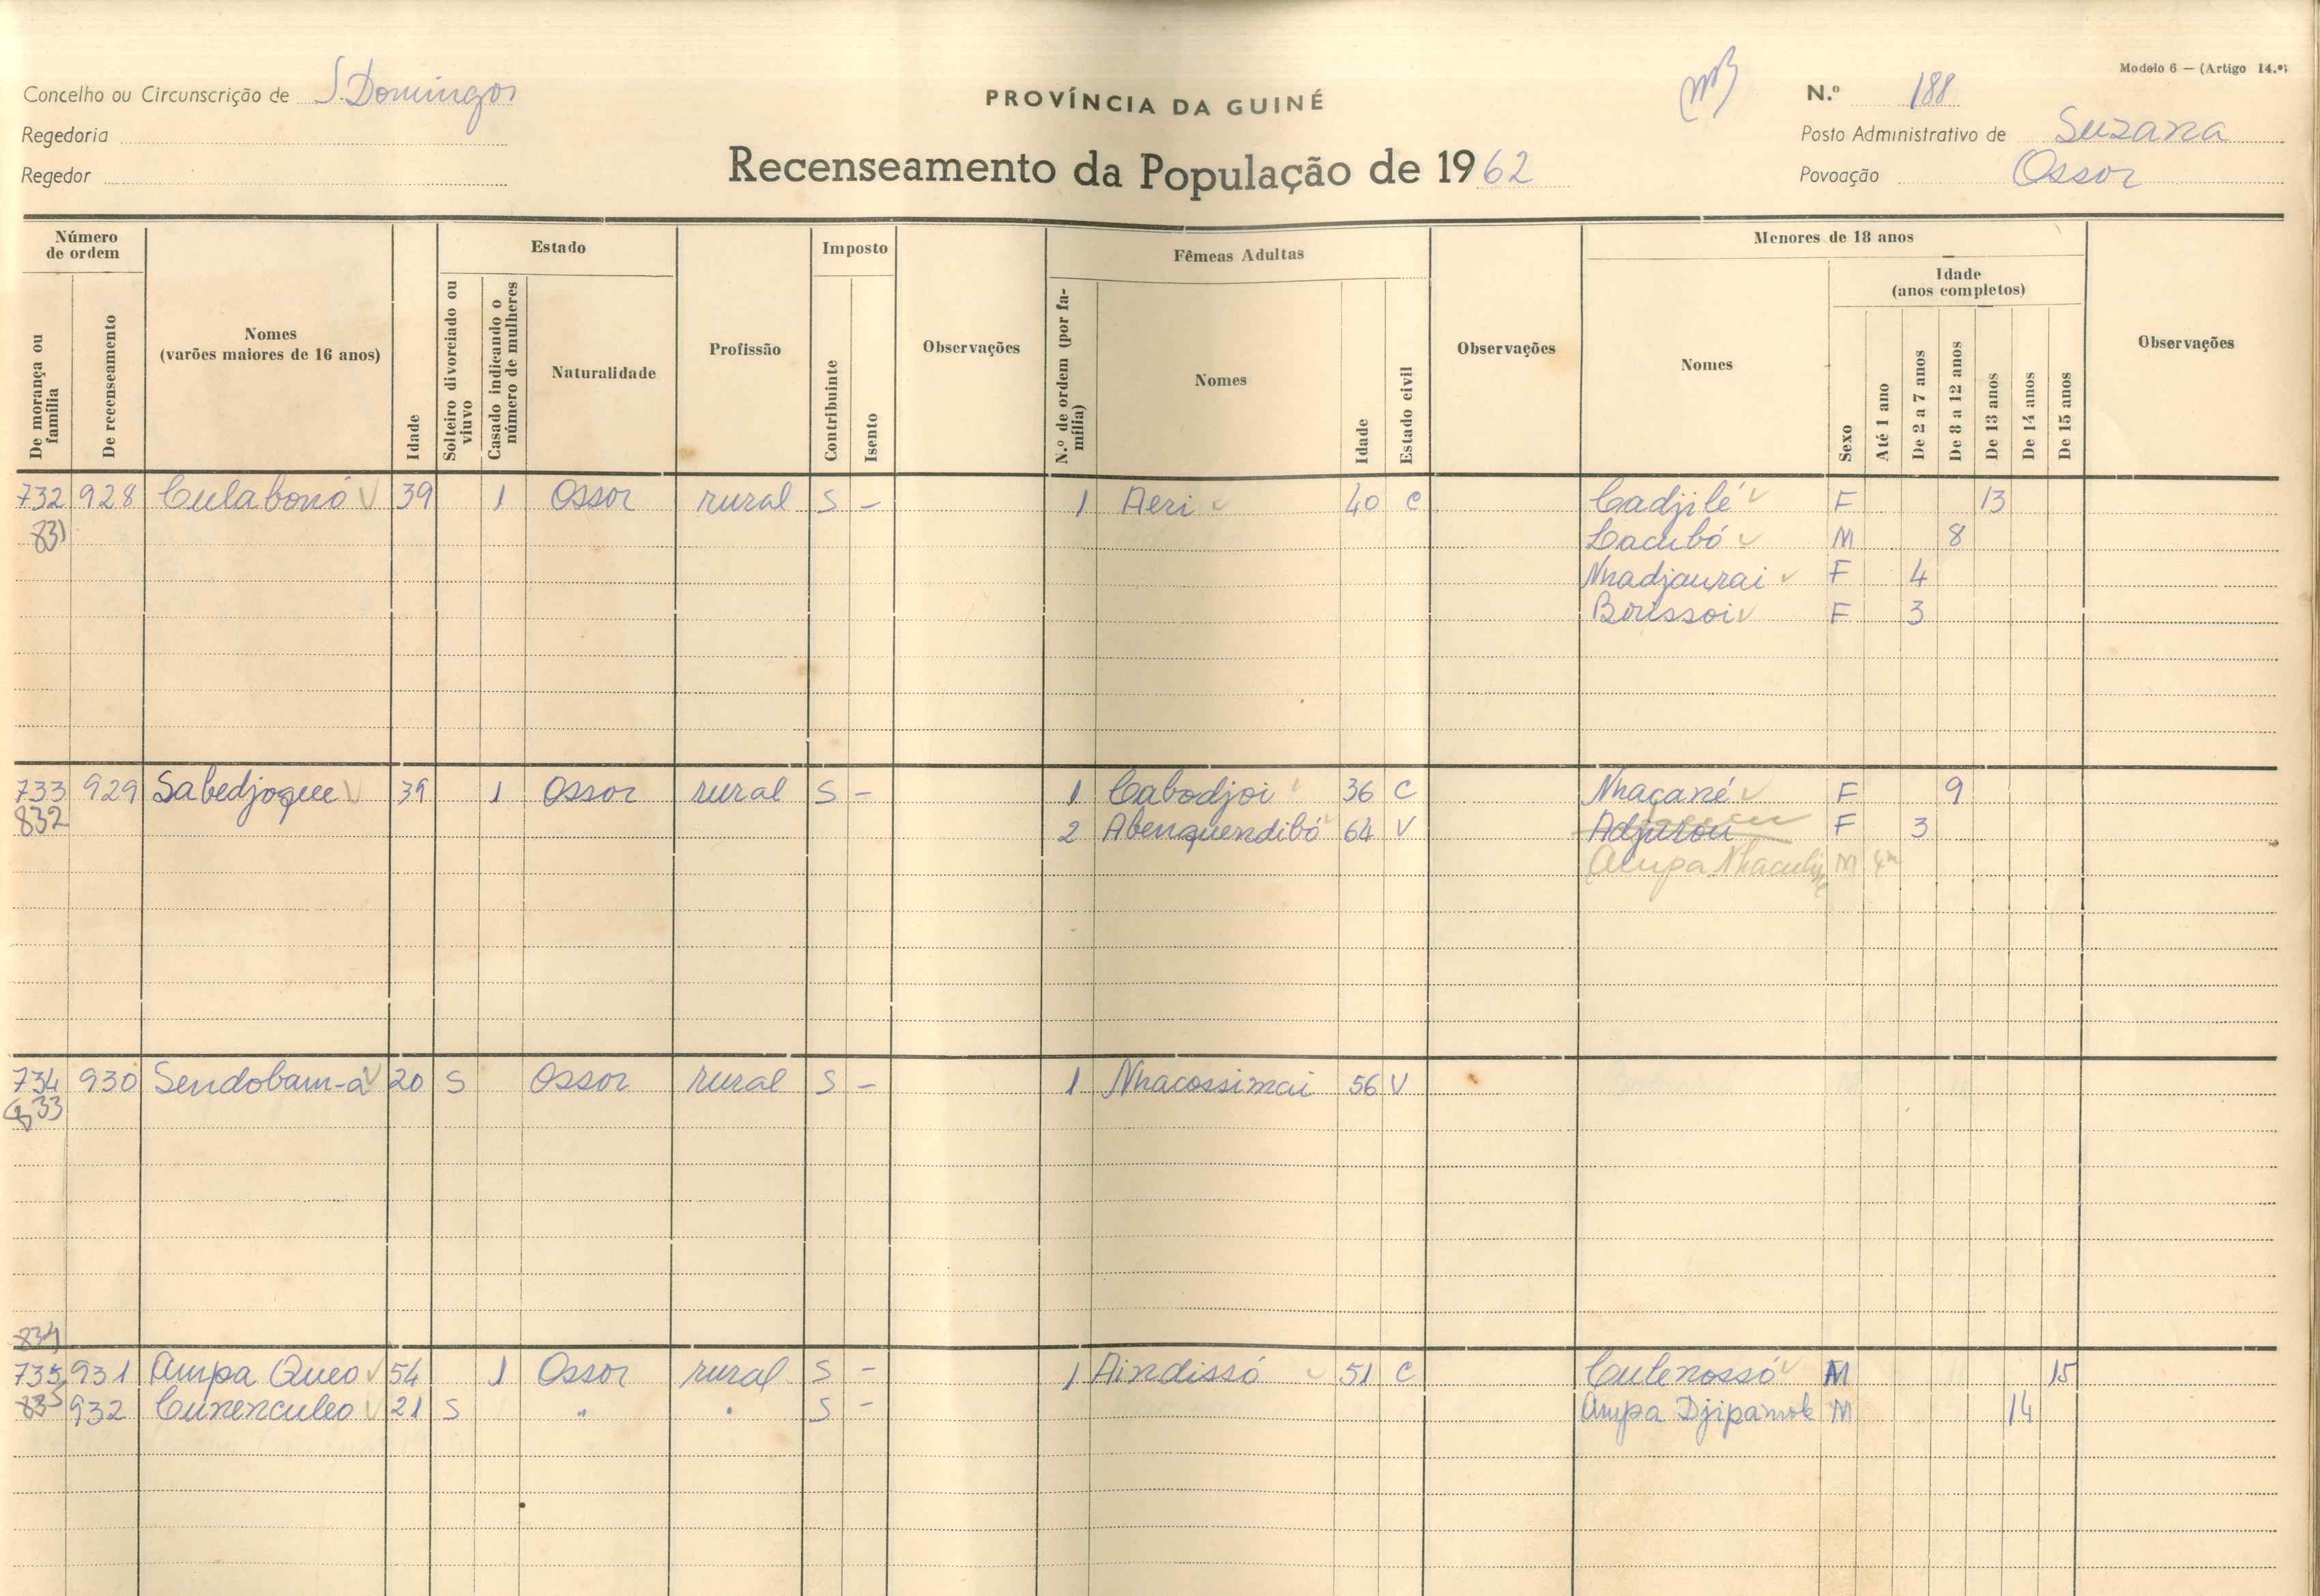 Modelo 6 — (Artigo 14.º)
Concelho ou Circunscrição de S. Domingos
PROVÍNCIA DA GUINÉ
N.º 188
Regedoria
Posto Administrativo de Suzana
Regedor
Recenseamento da População de 1962
Povoação Ossor
Número de ordem
Estado
Imposto
Fêmeas Adultas
Menores de 18 anos
Idade
(anos completos)
De morança ou família
De recenseamento
Nomes
(varões maiores de 16 anos)
Idade
Solteiro divorciado ou viuvo
Casado indicando o número de mulheres
Naturalidade
Profissão
Contribuinte
Isento
Observações
N.º de ordem (por família)
Nomes
Idade
Estado civil
Observações
Nomes
Sexo
Até 1 ano
De 2 a 7 anos
De 8 a 12 anos
De 13 anos
De 14 anos
De 15 anos
Observações
732 928 Culabonó 39 1 Ossor rural S - 1 Aeri 40 C Cadjilé F 13
831 Lacubó M 8
Nhadjaurai F 4
Borissoi F 3
733 929 Sabedjoque 39 1 Ossor rural S - 1 Cabodjoi 36 C Nhaçané F 9
832 2 Abenquendibó 64 V Adjurou F 3
Ampa M
734 930 Sendobam-á 20 S Ossor rural S - 1 Nhacossimai 56 V
833
834
735 931 Ampa Queo 54 1 Ossor rural S - 1 Aindissó 51 C Culenossó M 15
835 932 Cunenculeo 21 S " " S - Ampa Djipamok M 14